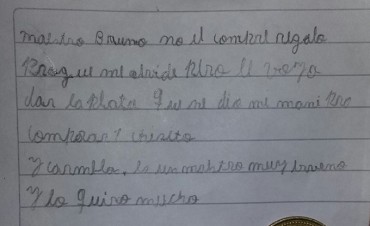 maestro Bruno no le compre regalo
Porque me olvide pero le voya
dar la plata que me dio mi mami Pro
comprar 1 vuelto
y carmela, es un maestro muy bueno
y lo quiro mucho